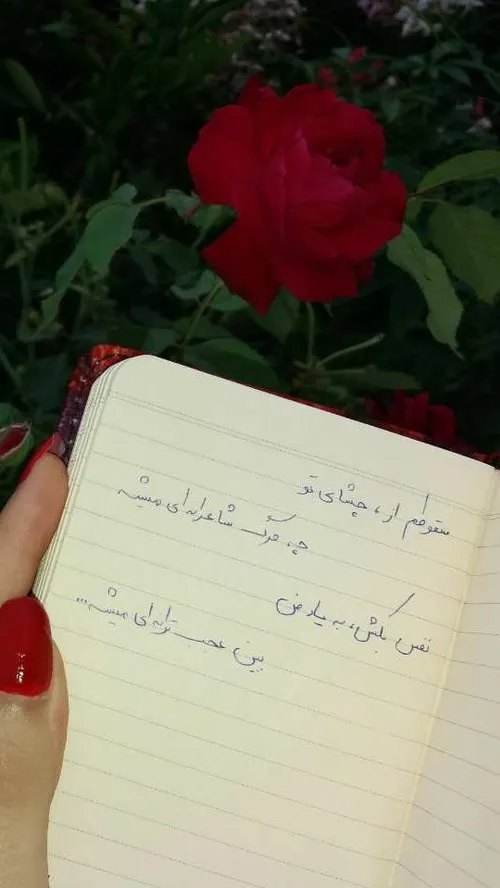 سقوطم از، چشای تو
چه مرگ شاعرانه‌ای میشه
نفس بکش، به یاد من
ببین عجب ترانه‌ای میشه...